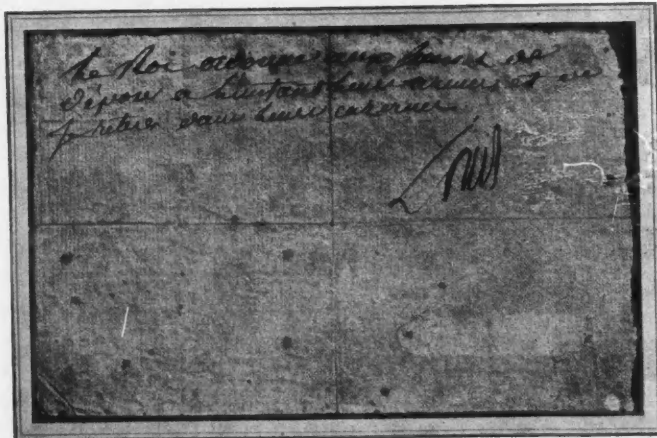 Le Roi ordonne aux Suisses de
déposer à l'instant leurs armes et de
se retirer dans leurs casernes
Louis